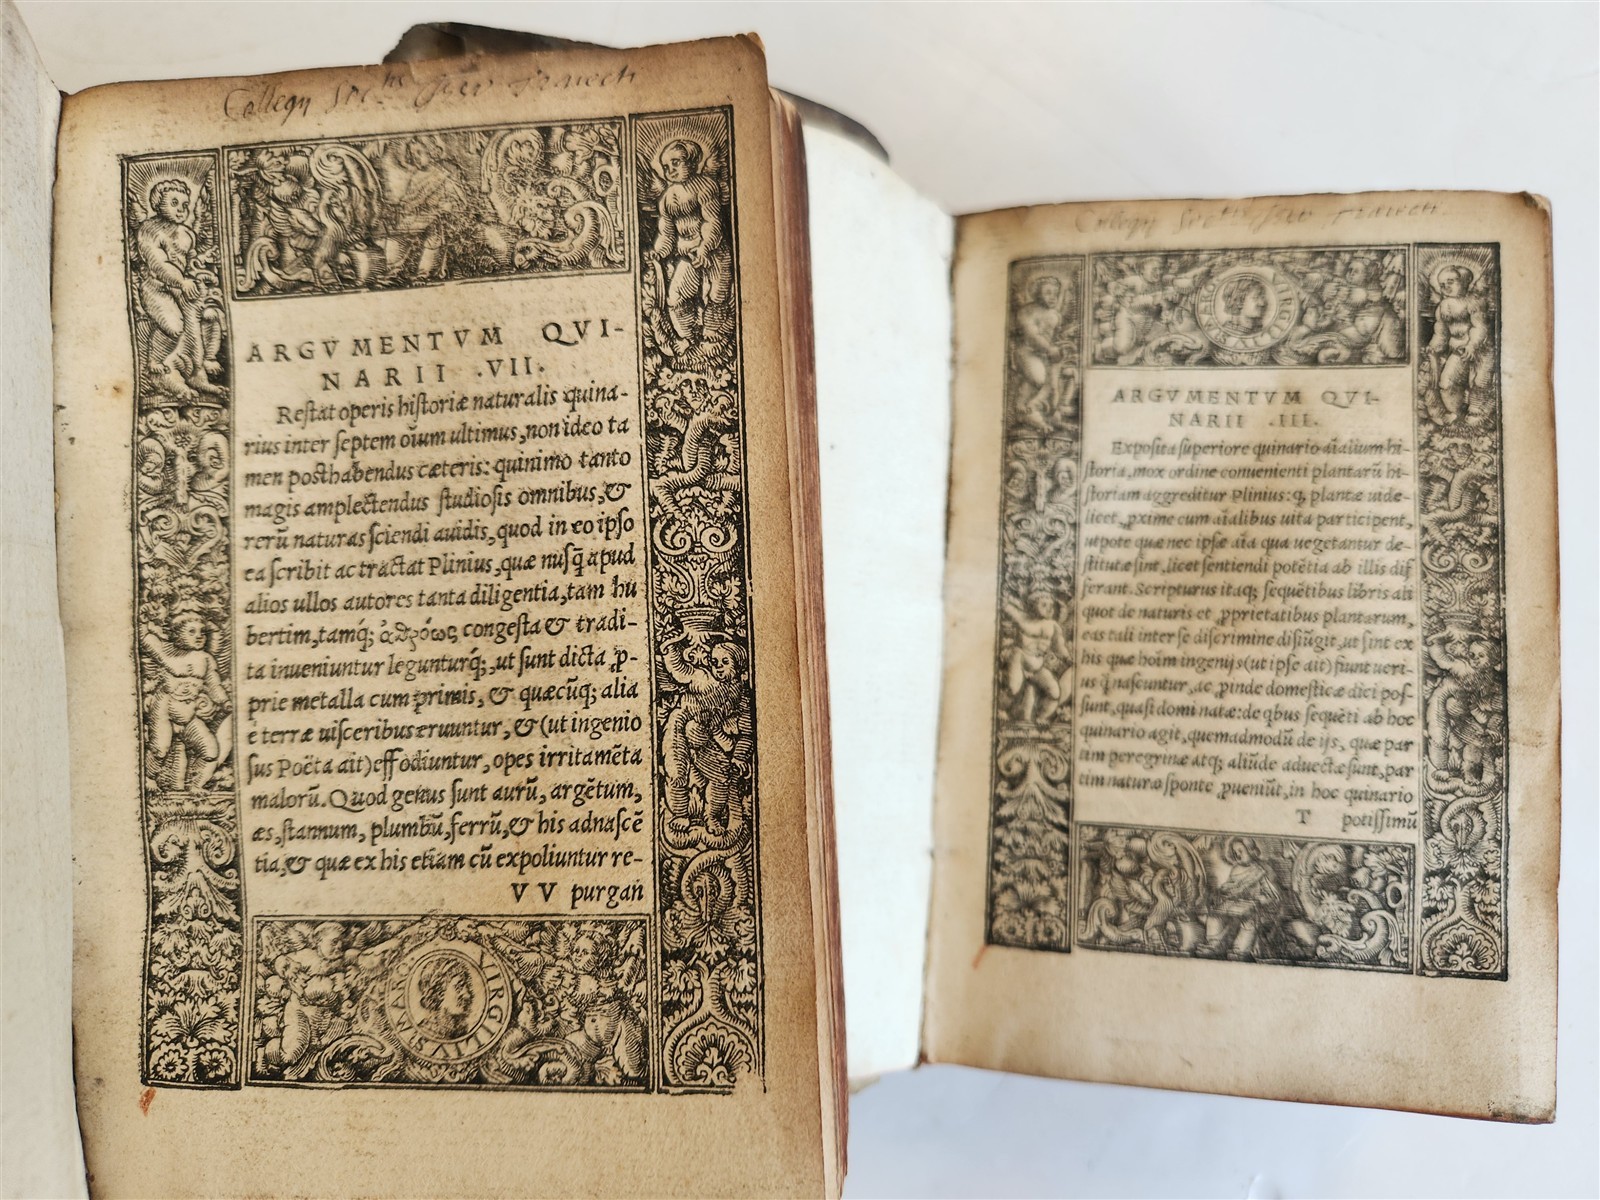 Collegij Soc.tis Jesu Trajecti
ARGVMENTVM QVI-
NARII .VII.
Restat operis historiæ naturalis quina-
rius inter septem oĩum ultimus, non ideo ta
men posthabendus cæteris: quinimo tanto
magis amplectendus studiosis omnibus, &
rerũ naturas sciendi auidis, quod in eo ipso
ea scribit ac tractat Plinius, quæ nusq̃ apud
alios ullos autores tanta diligentia, tam hu
bertim, tamq́; ἀθρόως congesta & tradi-
ta inueniuntur legunturq́;, ut sunt dicta ꝓ-
prie metalla cum primis, & quæcũq; alia
è terræ uisceribus eruuntur, & (ut ingenio
sus Poëta ait) effodiuntur, opes irritamẽta
malorũ. Quod genus sunt aurũ, argẽtum,
æs, stannum, plumbũ, ferrũ, & his adnascẽ
tia, & quæ ex his etiam cũ expoliuntur re-
V V purgan
MARO VIRGILIVS
Collegij Soc.tis Jesu Trajecti
MARO VIRGILIVS
ARGVMENTVM QVI-
NARII .III.
Exposita superiore quinario aĩalium hi-
storia, mox ordine conuenienti plantarũ hi-
storiam aggreditur Plinius: q, plantæ uide-
licet, ꝓxime cum aĩalibus uita participent,
utpote quæ nec ipsæ aĩa qua uegetantur de-
stitutæ sint, licet sentiendi potẽtia ab illis dif
ferant. Scripturus itaq; sequẽtibus libris ali
quot de naturis et ꝓprietatibus plantarum,
eas tali inter se discrimine disiũgit, ut sint ex
his quæ hoĩm ingenijs (ut ipse ait) fiunt ueri-
us q̃ nascuntur, ac ꝓinde domesticæ dici pos-
sunt, quasi domi natæ: de qbus sequẽti ab hoc
quinario agit, quemadmodũ de ijs, quæ par
tim peregrinæ atq; aliũde aduectæ sunt, par
tim naturæ sponte ꝓueniũt, in hoc quinario
T potissimũ